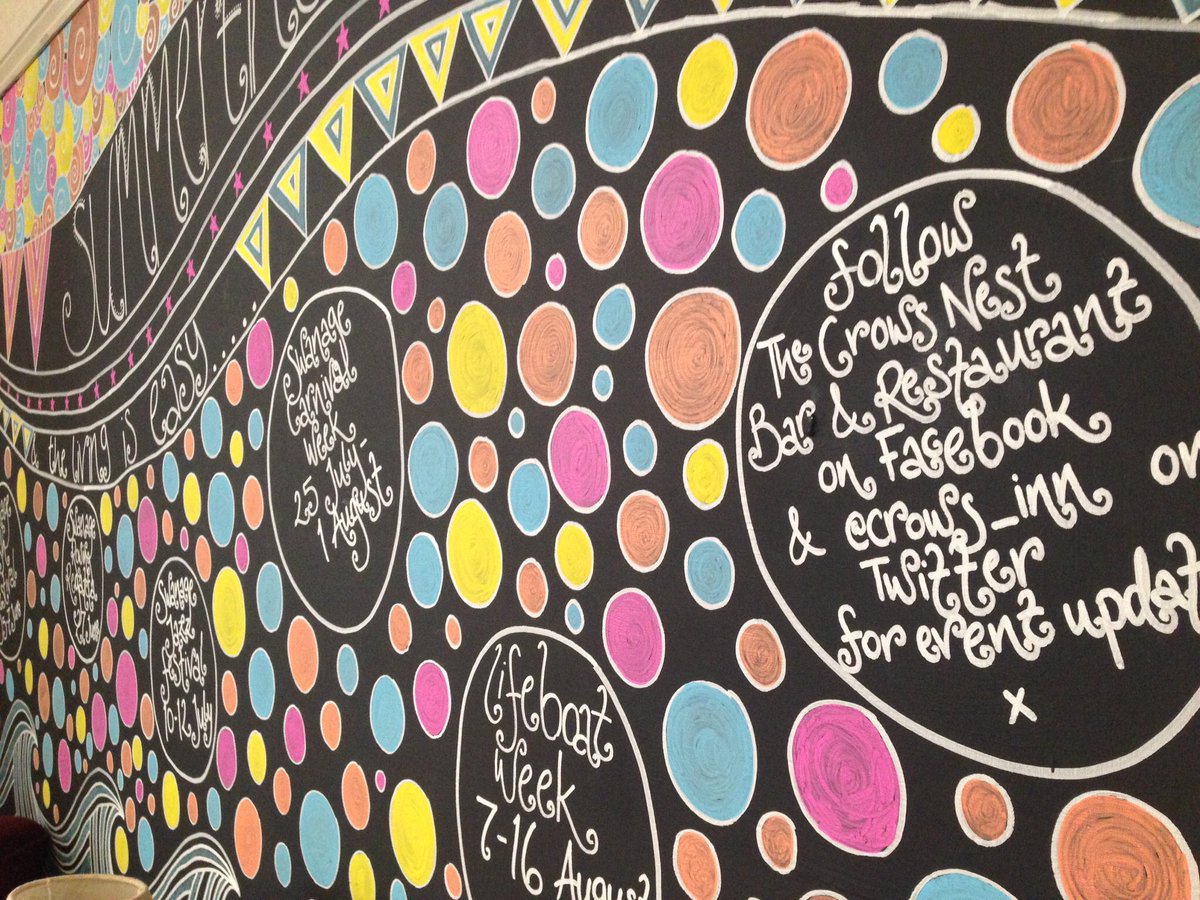 SUMMERTI
& the living is easy....
Swanage
Jazz
Festival
10-12 July
Swanage
Carnival
Week
25 July-
1 August
Lifeboat
Week
7-16 August
follow
The Crows Nest
Bar & Restaurant
on Facebook
& @crows_inn on
Twitter
for event updat
x